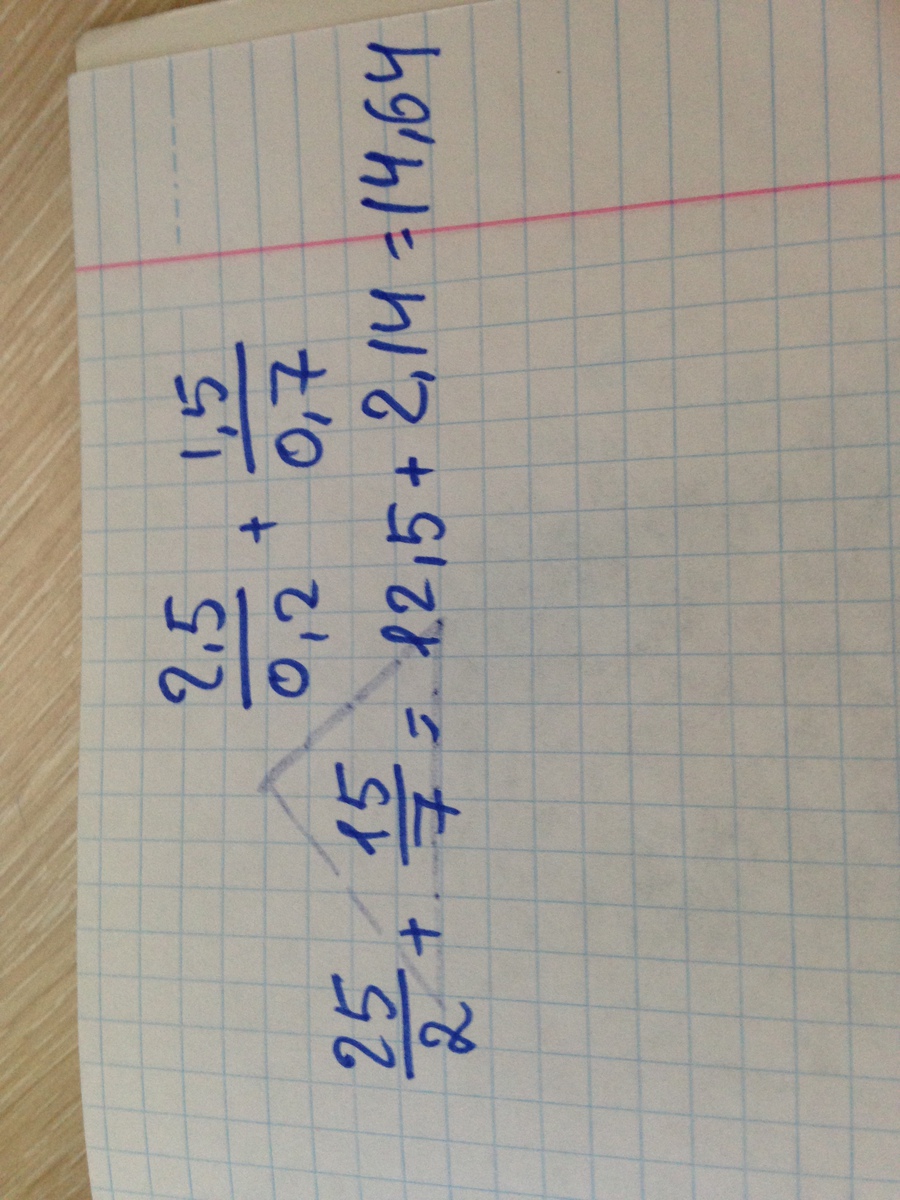 2,5/0,2 + 1,5/0,7
25/2 + 15/7 = 12,5 + 2,14 = 14,64